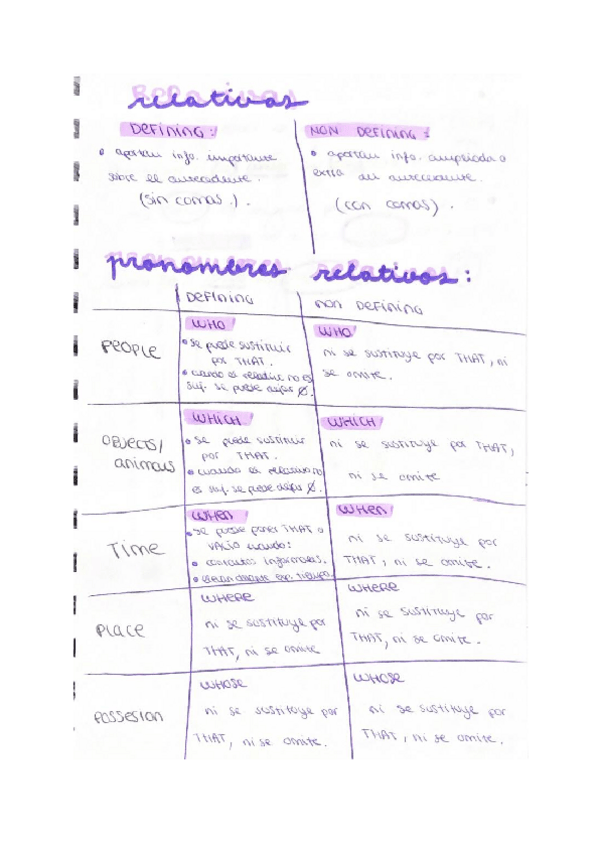 relativas
DEFINING:
• aportan info. importante
sobre el antecedente.
(sin comas.).
NON DEFINING:
• aportan info. ampliada o
extra del antecedente.
(con comas).
pronombres relativos:
DEFINING
NON DEFINING
PEOPLE
WHO
• se puede sustituir
por THAT.
• cuando el relativo no es
suj. se puede dejar Ø.
WHO
ni se sustituye por THAT, ni
se omite.
OBJECTS/
animals
WHICH
• se puede sustituir
por THAT.
• cuando el relativo no
es suj. se puede dejar Ø.
WHICH
ni se sustituye por THAT,
ni se omite
TIME
WHEN
• se puede poner THAT o
VACIO cuando:
• contextos informales.
• exp. tiempo.
WHEN
ni se sustituye por
THAT, ni se omite.
PLACE
WHERE
ni se sustituye por
THAT, ni se omite
WHERE
ni se sustituye por
THAT, ni se omite.
POSSESION
WHOSE
ni se sustituye por
THAT, ni se omite.
WHOSE
ni se sustituye por
THAT, ni se omite.